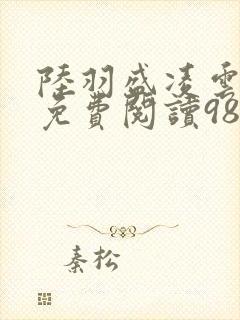 陸羽盛凌雲
免費閱讀98
秦松